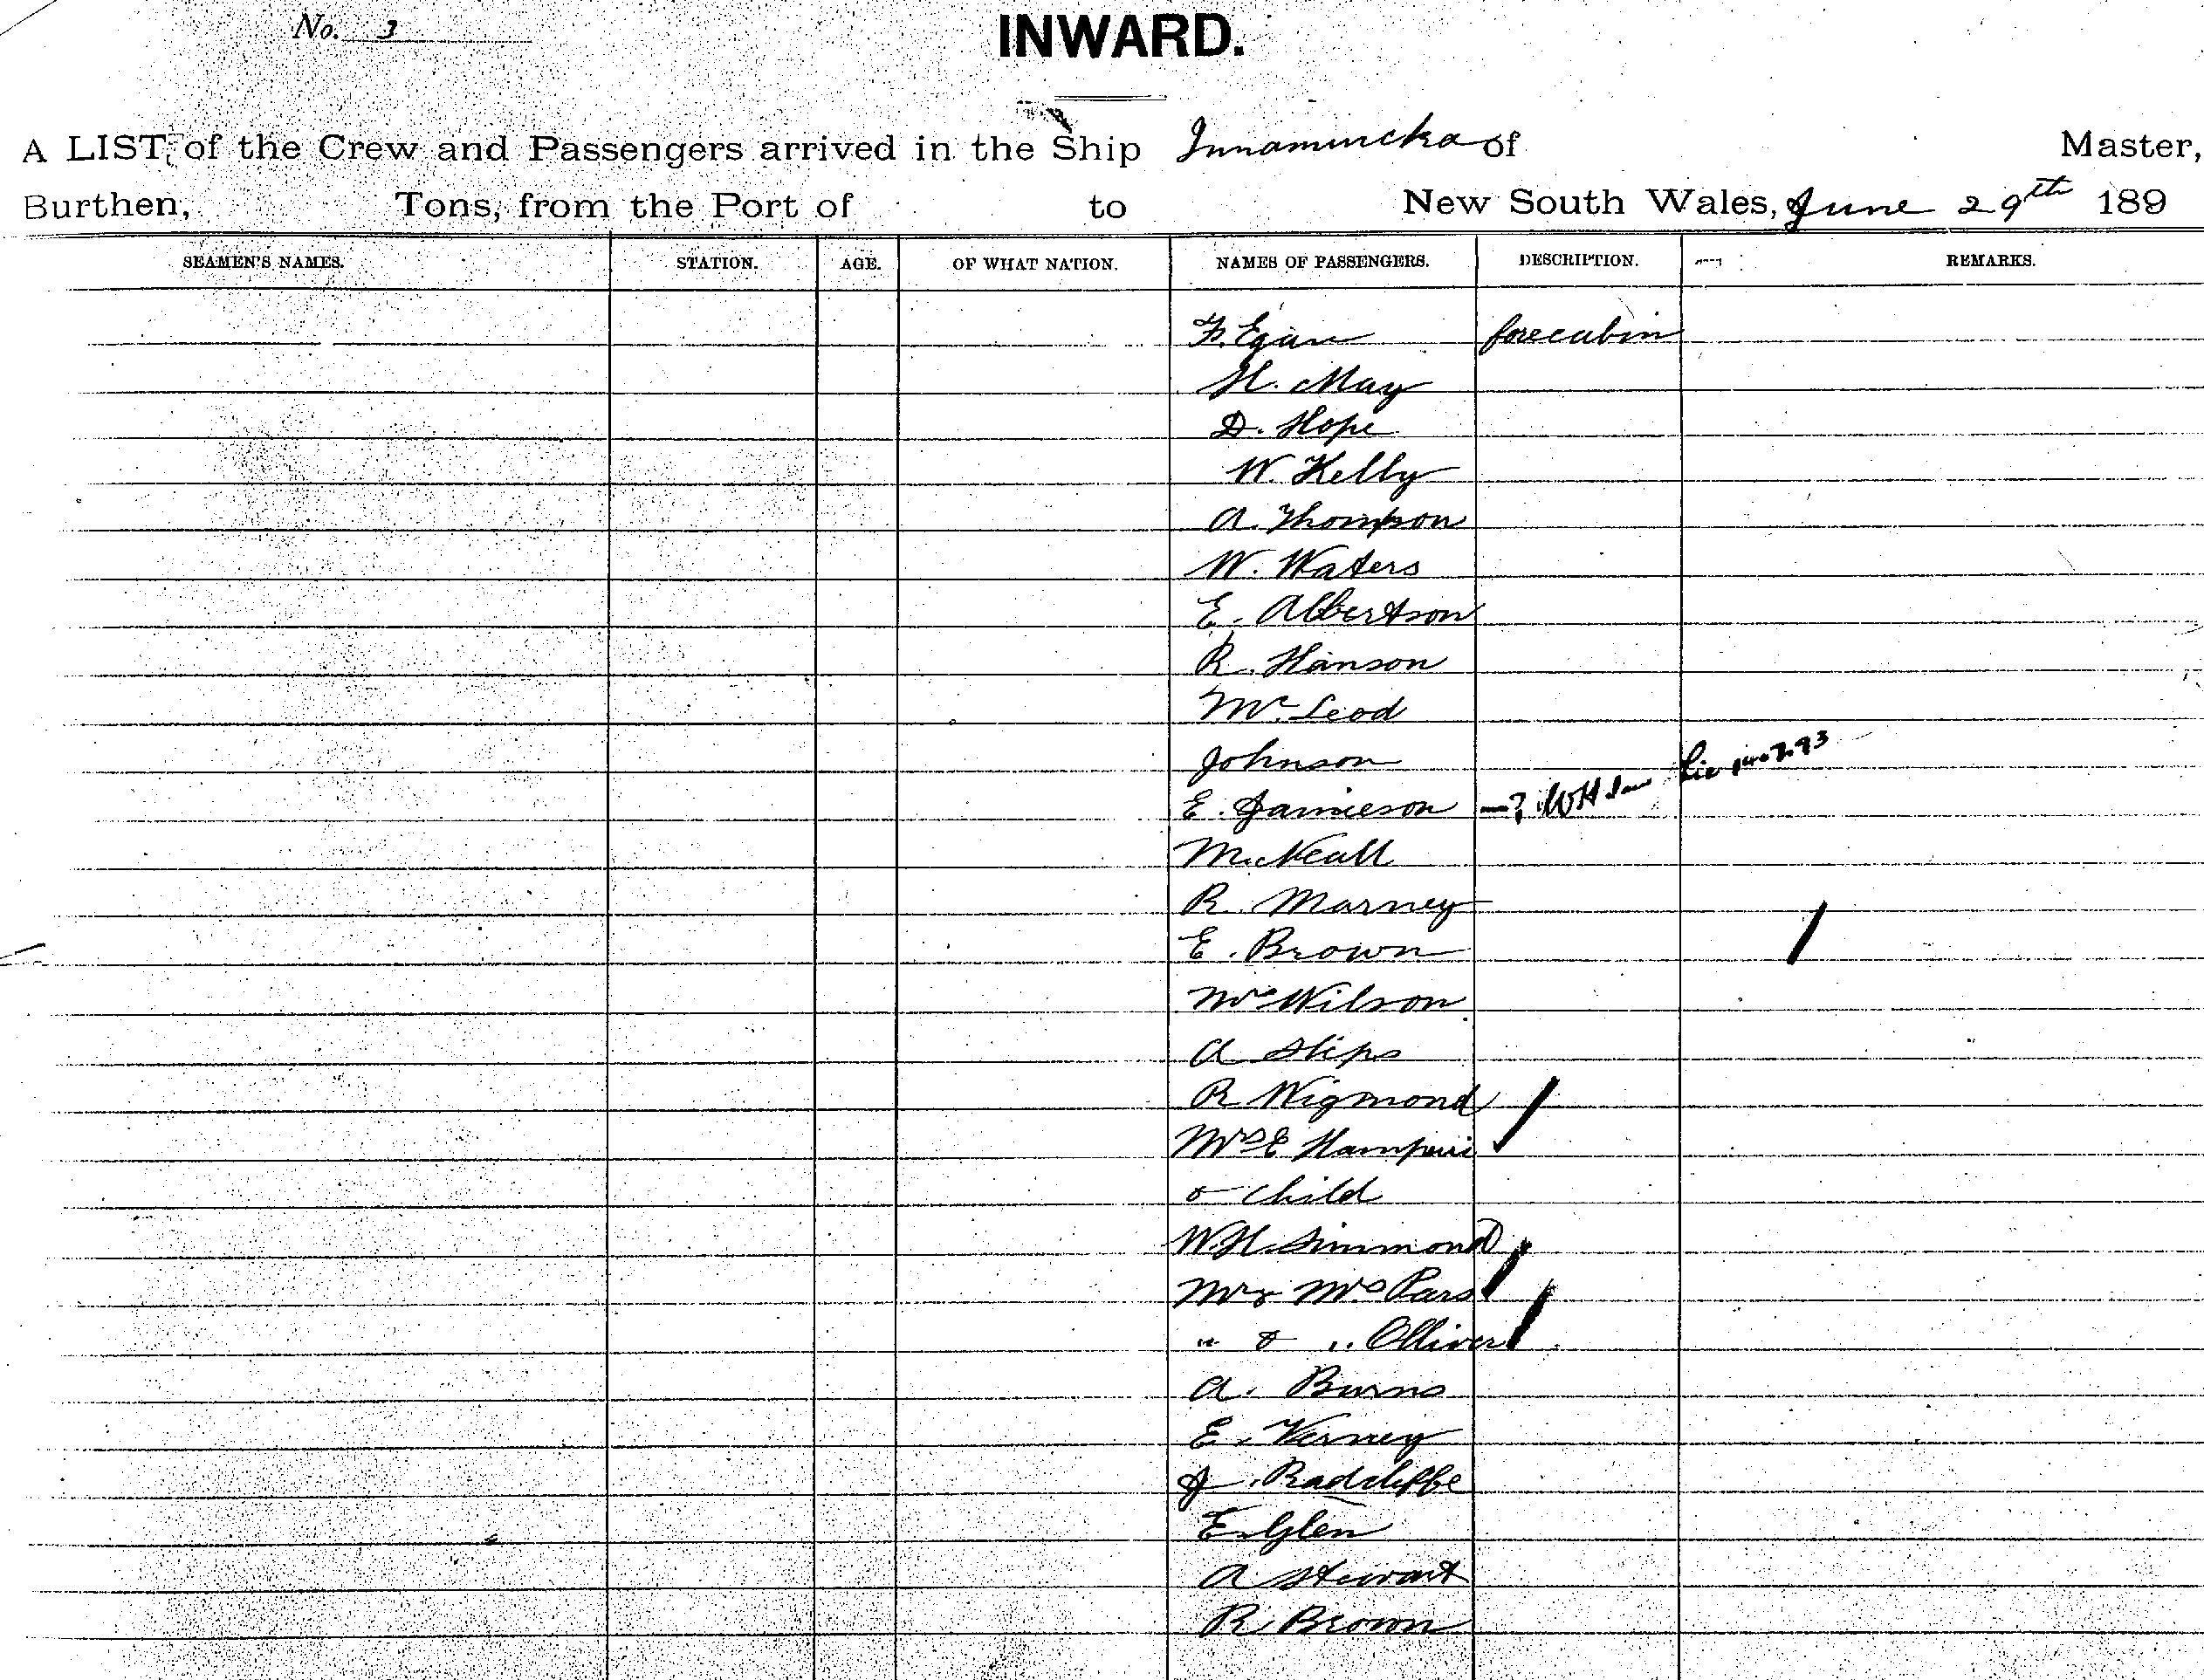 No. 3
INWARD.
A LIST, of the Crew and Passengers arrived in the Ship Innamincka of Master,
Burthen, Tons, from the Port of to New South Wales, June 29th 189
SEAMEN'S NAMES. STATION. AGE. OF WHAT NATION. NAMES OF PASSENGERS. DESCRIPTION. REMARKS.
F. Egan forecabin
H. May
D. Hope
W. Kelly
A. Thompson
W. Waters
E. Albertson
R. Hanson
McLeod
Johnson
E. Jamieson —? WH
McNeall
R. Marney
E. Brown
Mrs Wilson
A Slips
R Wigmond
Mrs E
& child
W.H. Simmond
Mr & Mrs Pars
" & " Olliver
A. Burns
E. Verney
J. Radcliffe
E. Glen
A Stewart
R. Brown